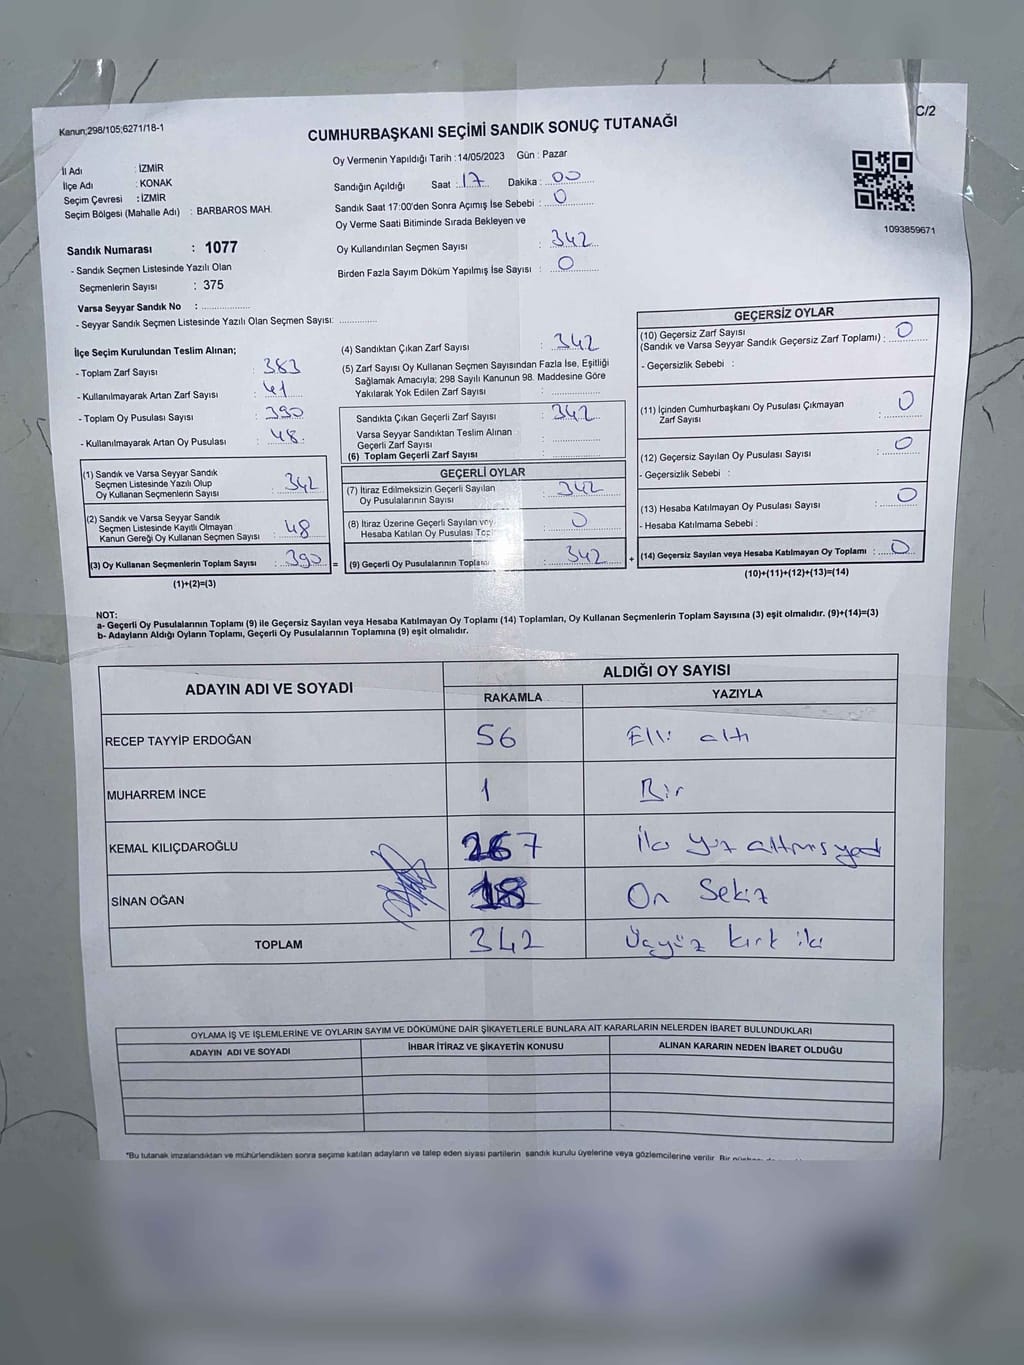 C/2
Kanun;298/105;6271/18-1
CUMHURBAŞKANI SEÇİMİ SANDIK SONUÇ TUTANAĞI
İl Adı : İZMİR
İlçe Adı : KONAK
Seçim Çevresi : İZMİR
Seçim Bölgesi (Mahalle Adı) : BARBAROS MAH.
Oy Vermenin Yapıldığı Tarih :14/05/2023 Gün : Pazar
Sandığın Açıldığı Saat : 17 Dakika : 00
Sandık Saat 17:00'den Sonra Açımış İse Sebebi : 0
Oy Verme Saati Bitiminde Sırada Bekleyen ve
Oy Kullandırılan Seçmen Sayısı : 342
Birden Fazla Sayım Döküm Yapılmış İse Sayısı : 0
1093859671
Sandık Numarası : 1077
- Sandık Seçmen Listesinde Yazılı Olan
Seçmenlerin Sayısı : 375
Varsa Seyyar Sandık No : ................
- Seyyar Sandık Seçmen Listesinde Yazılı Olan Seçmen Sayısı: .............
İlçe Seçim Kurulundan Teslim Alınan;
- Toplam Zarf Sayısı : 383
- Kullanılmayarak Artan Zarf Sayısı : 41
- Toplam Oy Pusulası Sayısı : 390
- Kullanılmayarak Artan Oy Pusulası : 48
(1) Sandık ve Varsa Seyyar Sandık
Seçmen Listesinde Yazılı Olup
Oy Kullanan Seçmenlerin Sayısı : 342
(2) Sandık ve Varsa Seyyar Sandık
Seçmen Listesinde Kayıtlı Olmayan
Kanun Gereği Oy Kullanan Seçmen Sayısı : 48
(3) Oy Kullanan Seçmenlerin Toplam Sayısı : 390 =
(1)+(2)=(3)
(4) Sandıktan Çıkan Zarf Sayısı : 342
(5) Zarf Sayısı Oy Kullanan Seçmen Sayısından Fazla İse, Eşitliği
Sağlamak Amacıyla; 298 Sayılı Kanunun 98. Maddesine Göre
Yakılarak Yok Edilen Zarf Sayısı : ................
Sandıkta Çıkan Geçerli Zarf Sayısı : 342
Varsa Seyyar Sandıktan Teslim Alınan
Geçerli Zarf Sayısı : ................
(6) Toplam Geçerli Zarf Sayısı : ................
GEÇERLİ OYLAR
(7) İtiraz Edilmeksizin Geçerli Sayılan
Oy Pusulalarının Sayısı : 342
(8) İtiraz Üzerine Geçerli Sayılan vey
Hesaba Katılan Oy Pusulası : 0
(9) Geçerli Oy Pusulalarının : 342 +
GEÇERSİZ OYLAR
(10) Geçersiz Zarf Sayısı
(Sandık ve Varsa Seyyar Sandık Geçersiz Zarf Toplamı) : 0
- Geçersizlik Sebebi :
(11) İçinden Cumhurbaşkanı Oy Pusulası Çıkmayan
Zarf Sayısı : 0
(12) Geçersiz Sayılan Oy Pusulası Sayısı : 0
- Geçersizlik Sebebi :
(13) Hesaba Katılmayan Oy Pusulası Sayısı : 0
- Hesaba Katılmama Sebebi :
(14) Geçersiz Sayılan veya Hesaba Katılmayan Oy Toplamı : 0
(10)+(11)+(12)+(13)=(14)
NOT:
a- Geçerli Oy Pusulalarının Toplamı (9) ile Geçersiz Sayılan veya Hesaba Katılmayan Oy Toplamı (14) Toplamları, Oy Kullanan Seçmenlerin Toplam Sayısına (3) eşit olmalıdır. (9)+(14)=(3)
b- Adayların Aldığı Oyların Toplamı, Geçerli Oy Pusulalarının Toplamına (9) eşit olmalıdır.
ADAYIN ADI VE SOYADI
ALDIĞI OY SAYISI
RAKAMLA YAZIYLA
RECEP TAYYİP ERDOĞAN 56 Elli altı
MUHARREM İNCE 1 Bir
KEMAL KILIÇDAROĞLU 267 İki yüz altmış yedi
SİNAN OĞAN 18 On Sekiz
TOPLAM 342 Üçyüz kırk iki
OYLAMA İŞ VE İŞLEMLERİNE VE OYLARIN SAYIM VE DÖKÜMÜNE DAİR ŞİKAYETLERLE BUNLARA AİT KARARLARIN NELERDEN İBARET BULUNDUKLARI
ADAYIN ADI VE SOYADI İHBAR İTİRAZ VE ŞİKAYETİN KONUSU ALINAN KARARIN NEDEN İBARET OLDUĞU
*Bu tutanak imzalandıktan ve mühürlendikten sonra seçime katılan adayların ve talep eden siyasi partilerin sandık kurulu üyelerine veya gözlemcilerine verilir. Bir